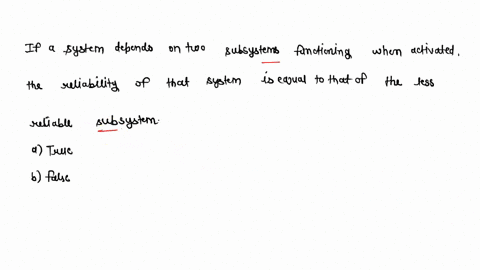 If a system depends on two subsystems functioning when activated.
the reliability of that system is equal to that of the less
reliable subsystem.
a) True
b) false